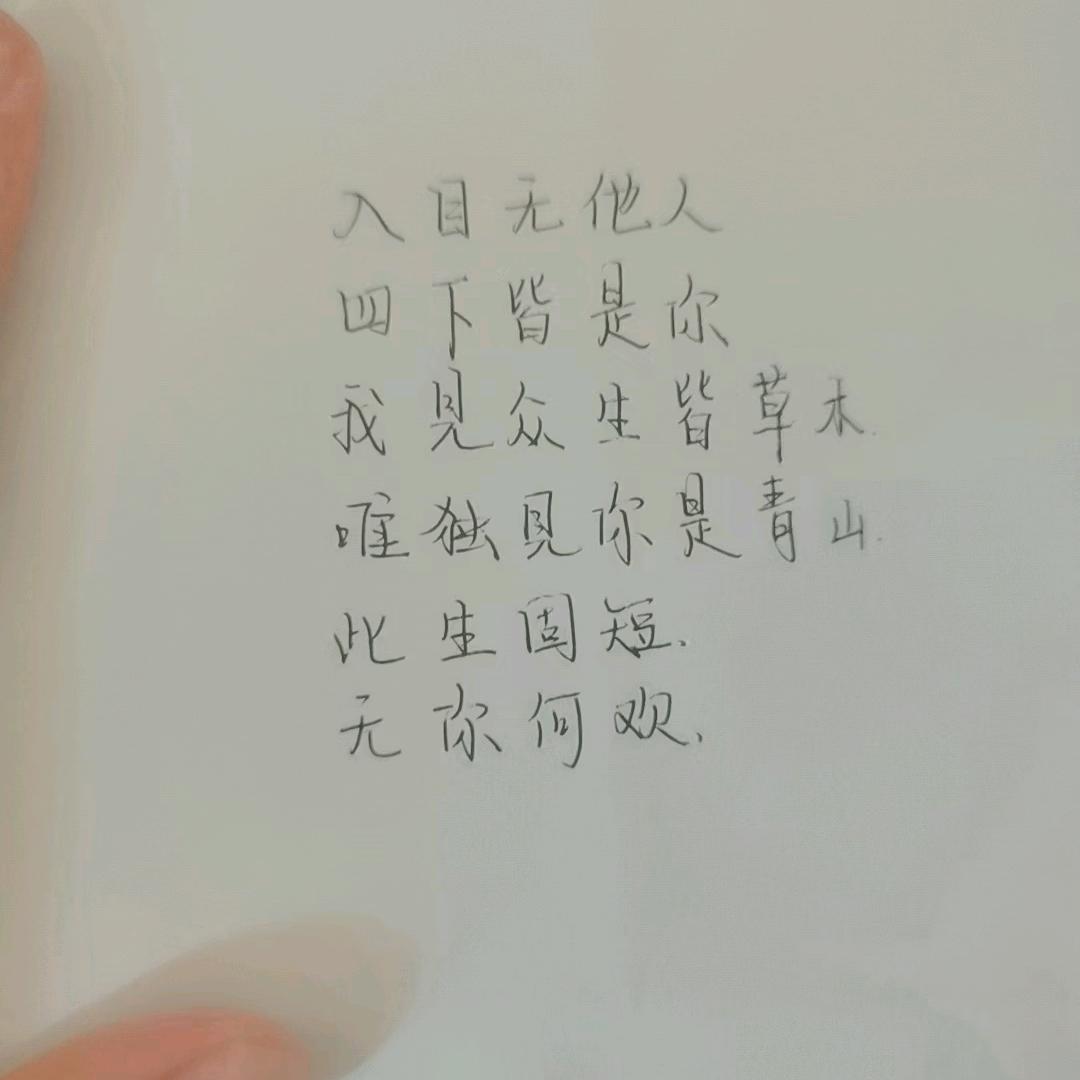 入目无他人
四下皆是你
我見众生皆草木.
唯独見你是青山.
此生固短.
无你何欢.